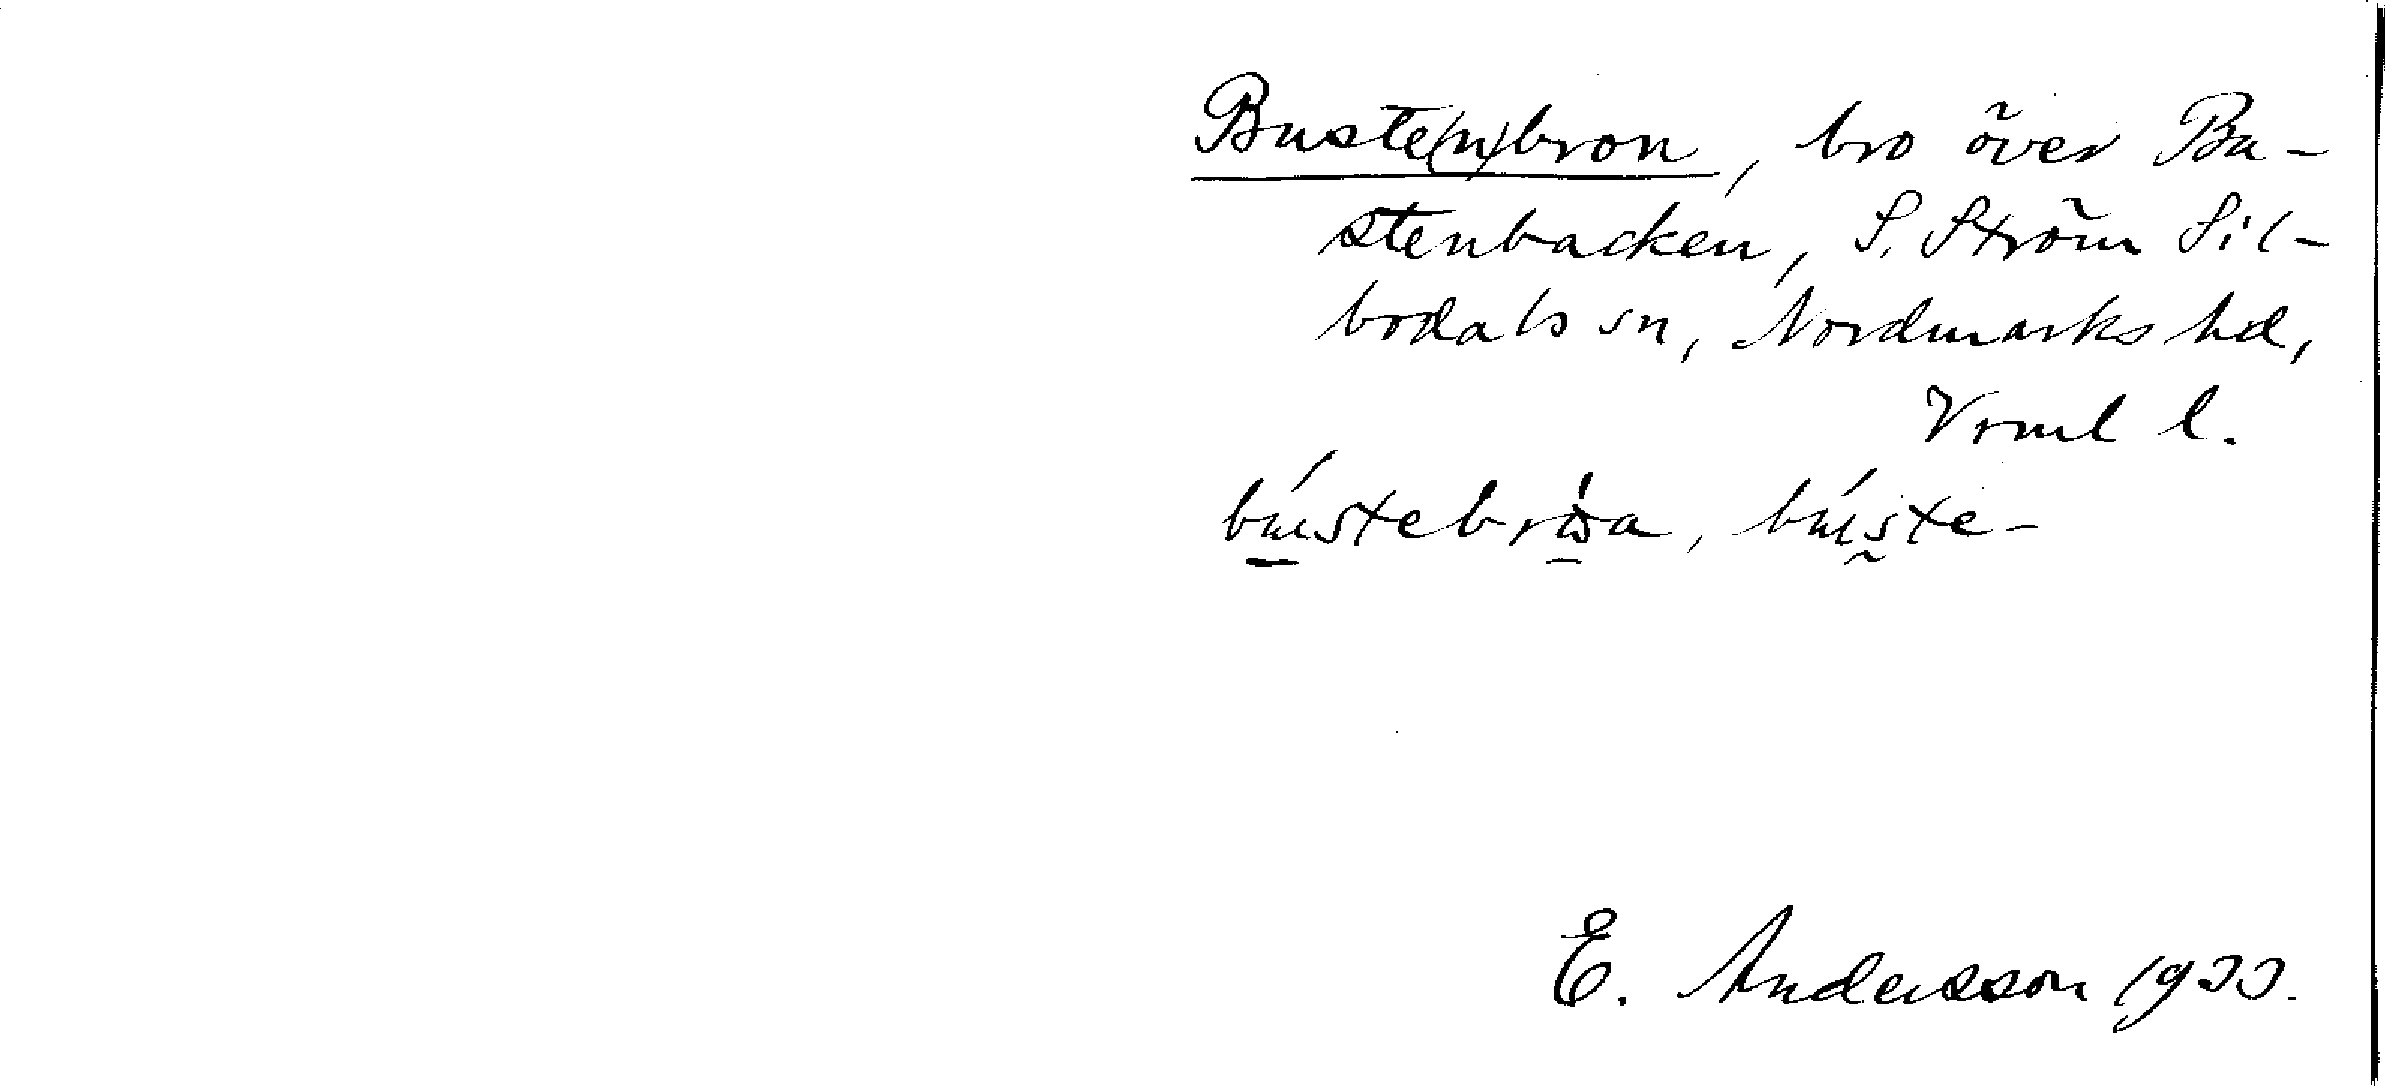 Buste(n)bron, bro över Bu-
stenbäcken, S. Ström Sil-
bodals sn, Nordmarks hd,
Vrml l.
bústebróa, búste-
E. Andersson 1933.